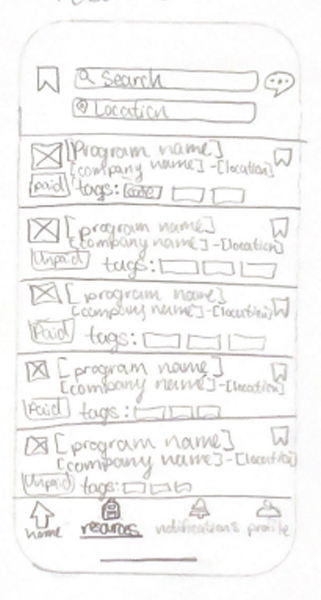 Search
Location
[Program name]
[company name] -[location]
paid tags: [code]
[program name]
[company name] -[location]
Unpaid tags:
[program name]
[company name] -[location]
Paid tags:
[program name]
[company name] -[location]
Paid tags:
[program name]
[company name] -[location]
Unpaid tags:
home resources notifications profile